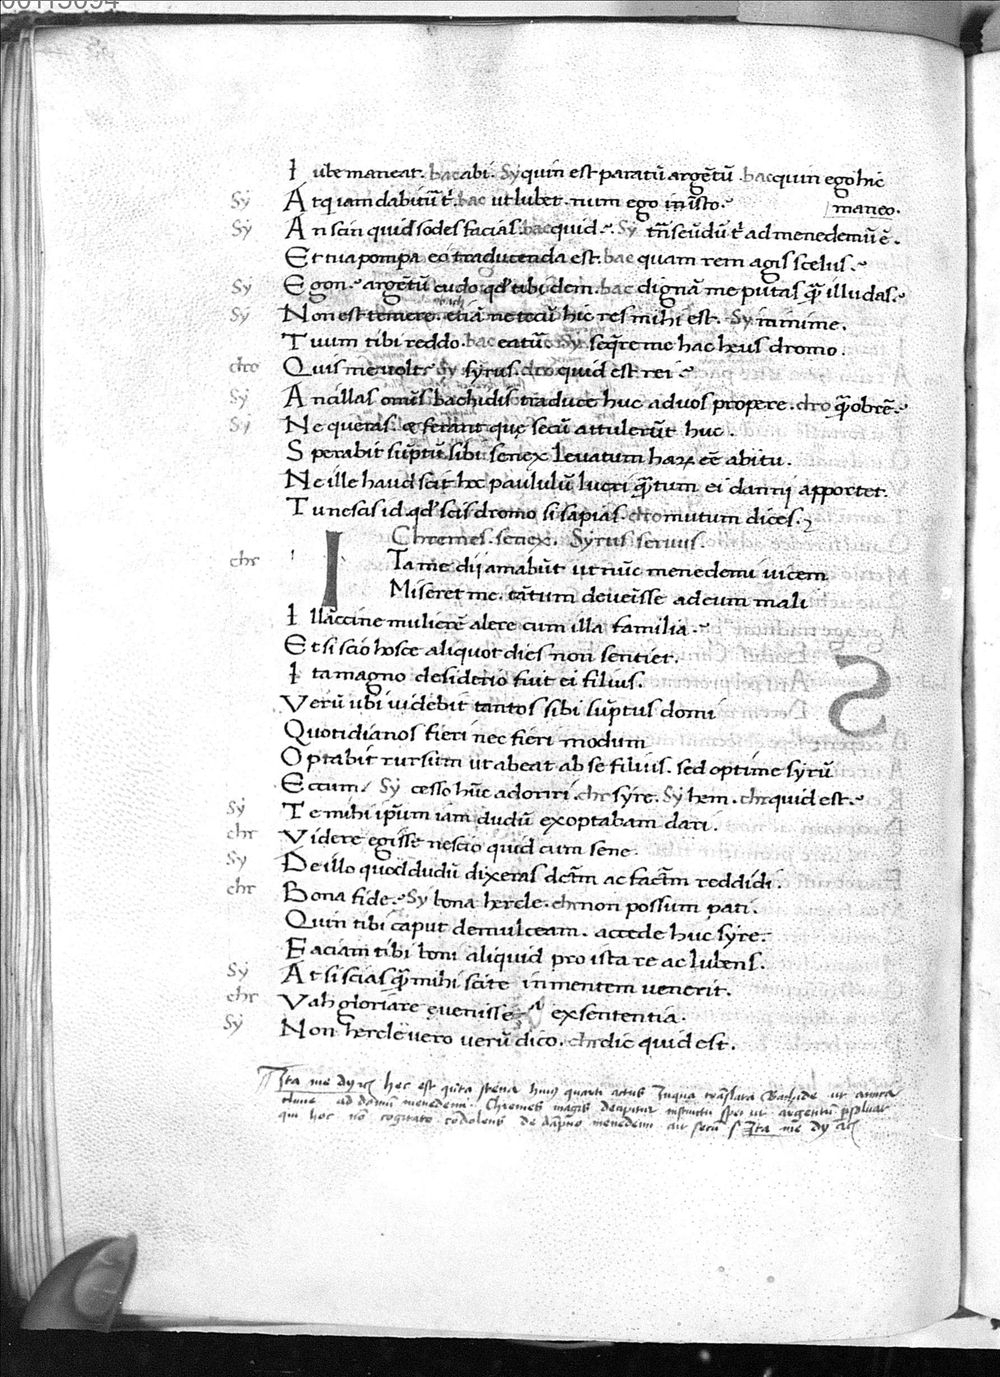 00115094
Iube maneat. bac abi. Sy quin est paratũ argẽtũ. bac quin ego hic
maneo.
Sy Atq iam dabitũ t'. bac ut lubet. num ego insto.
Sy An scin quid sodes facias. bac quid. Sy trãseũdũ t' ad menedemũ ẽ.
Et tua pompa eo traducenda est. bac quam rem agis scelus.
Sy Egon. argẽtũ cudo qđ tibi dem. bac dignã me putas quã illudas.
Sy Non est temere. etiã ne tecũ hic res mihi est. Sy minime.
Tuum tibi reddo. bac eatũr. Sy seq̃re me hac heus dromo.
dro Quis me uolt. Sy syrus. dro quid est rei
Sy Ancillas omĩs bachidis traduce huc ad uos propere. dro quã obrẽ.
Sy Ne queras. & ferant quę secũ attulerũt huc.
Sperabit sũptũ sibi senex leuatum haꝝ eẽ abitu.
Ne ille haud scit hoc paululũ lucri quãtum ei damnj apportet.
Tu nescis id qđ scis dromo si sapias. dro mutum dices.
Chremes. senex. Syrus seruus.
chr Ita me dij amabũt ut nũc menedemi uicem
Miseret me. tãtum deueĩsse ad eum mali
Illãccine mulierẽ alere cum illa familia.
Et si scio hosce aliquot dies non sentiet.
Ita magno desiderio fiut ei filius.
Verũ ubi uidebit tantos sibi sũptus domi
Quotidianos fieri nec fieri modum
Optabit rursum ut abeat ab se filius. sed optime syrũ
Eccum. Sy cesso hũc adoriri. chr syre. Sy hem. chr quid est.
Sy Te mihi ip̃um iam dudũ exoptabam dari.
chr Videre egisse nescio quid cum sene.
Sy De illo quod dudũ dixeras dctm̃ ac factm̃ reddidi.
chr Bona fide. Sy bona hercle. chr non possum pati.
Quin tibi caput demulceam. accede huc syre.
Faciam tibi boni aliquid pro ista re ac lubens.
Sy At si scias quã mihi scite in mentem uenerit.
chr Vah gloriare euenisse ex sententia.
Sy Non hercle uero verũ dico. chr dic quid est.
Ita me dy hec est quita scena huius quarti actus In qua trãslata Bachide ut amica
clinie ad domũ menedemi. Chremes magis decipitur instructũ syrũ ut argentũ p̃soluat
qui hoc nõ cogitato cõdolens de dãpno menedemi ait secũ Ita me dy